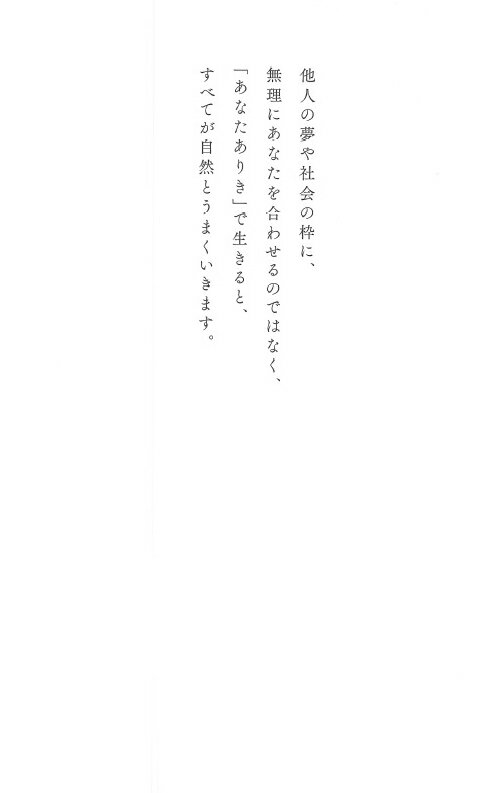 他人の夢や社会の枠に、
無理にあなたを合わせるのではなく、
「あなたありき」で生きると、
すべてが自然とうまくいきます。